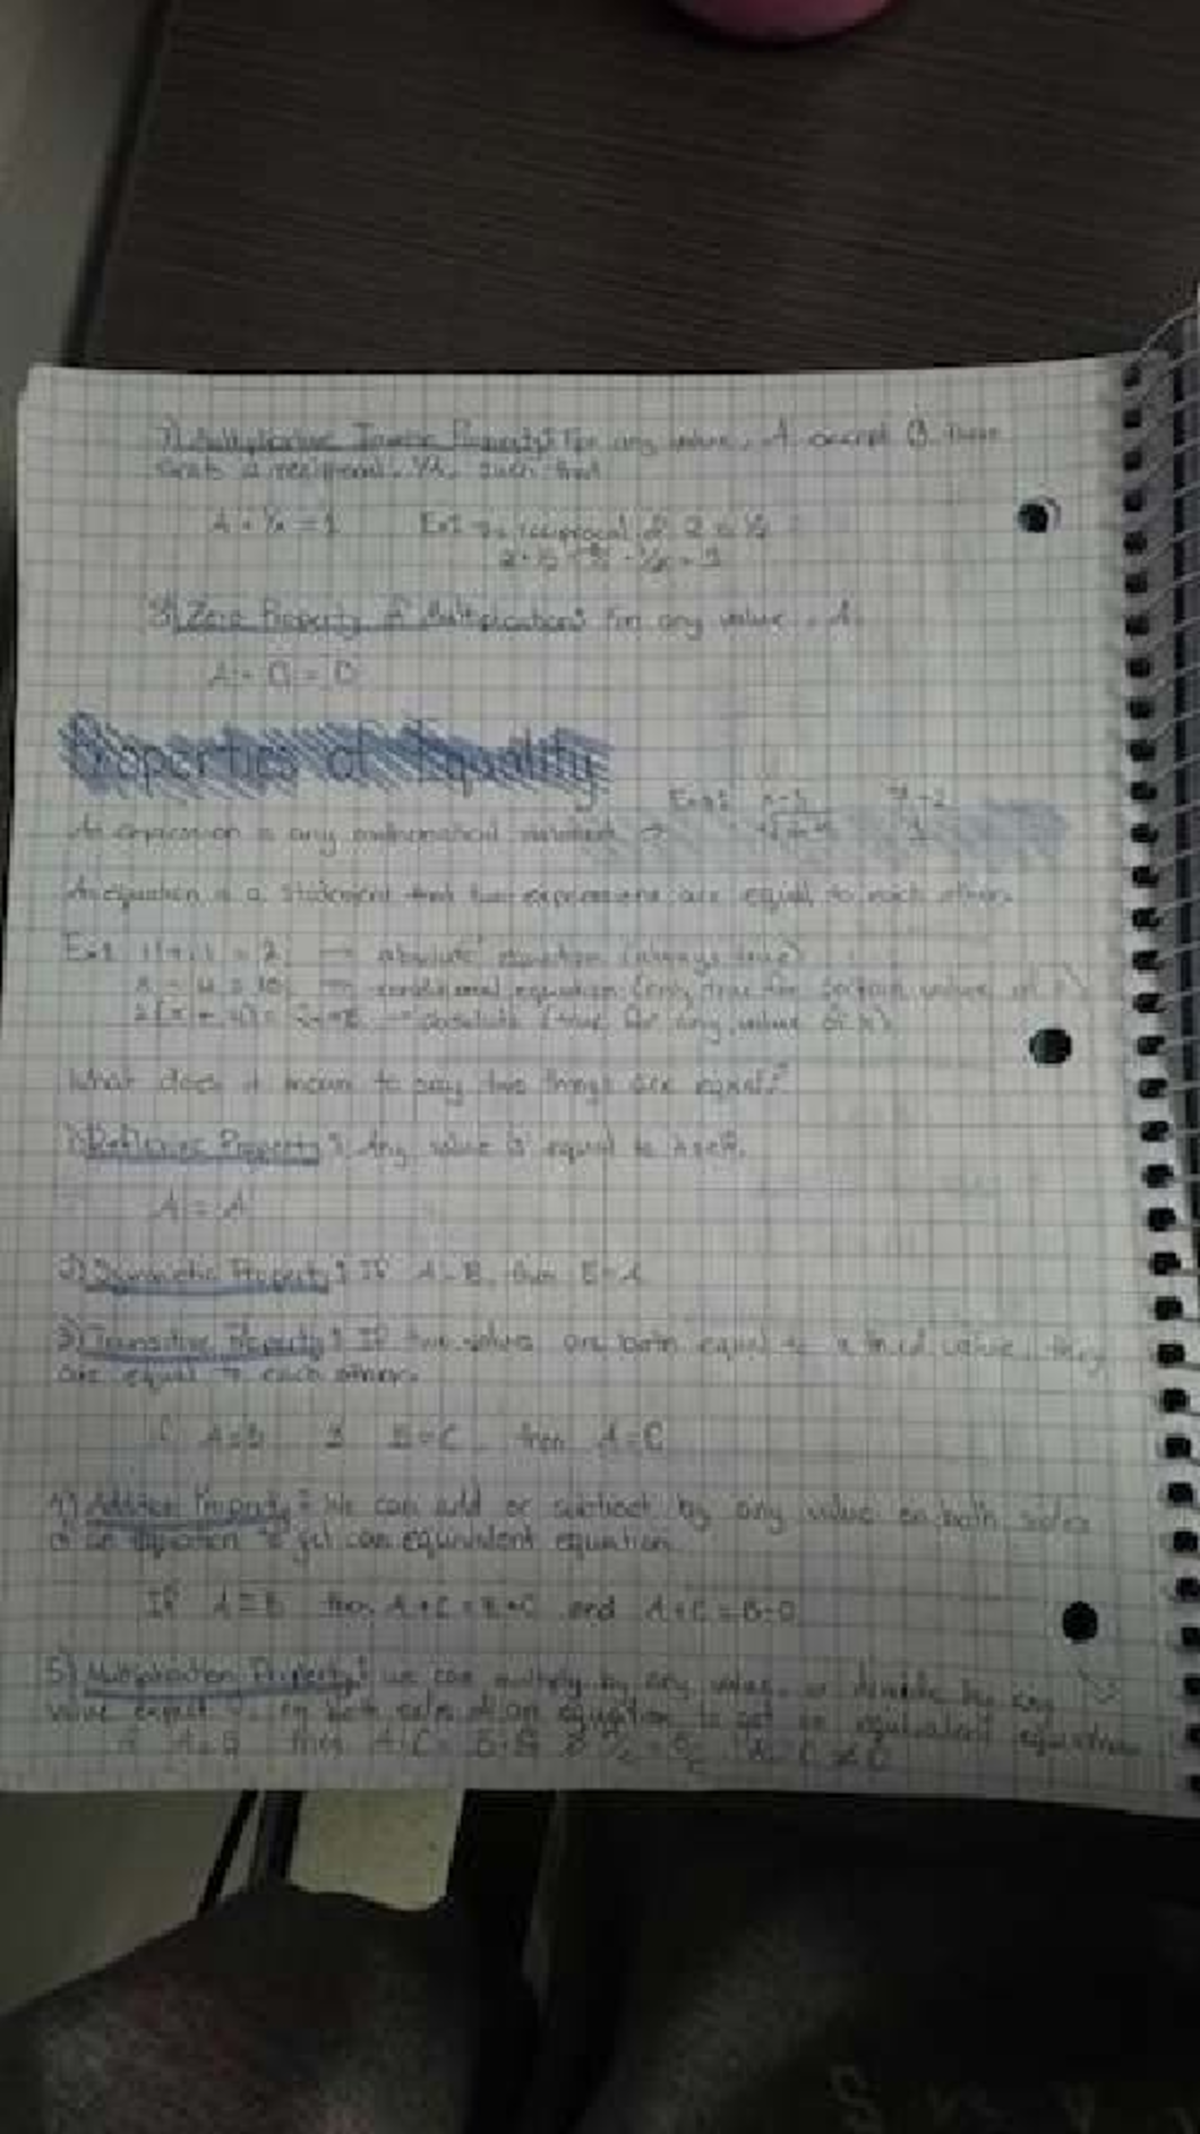 7) Multiplicative Inverse Property: For any value, A except 0, there
exists a reciprocal, 1/A, such that
A · 1/A = 1 Ex: reciprocal of 2 is 1/2
8) Zero Property of Multiplication: For any value, A:
A · 0 = 0
Properties of Equality
An expression is any mathematical →
An equation is a statement that two expressions are equal to each other.
Ex: 1 + 1 = 2 → absolute equation (always true)
→ conditional equation (only true for certain values of x)
→ absolute (true for any value of x)
What does it mean to say two things are equal?
1) Reflexive Property: Any value is equal to itself.
A = A
2) Symmetric Property: If A = B, then B = A
3) Transitive Property: If two values are both equal to a third value, they
are equal to each other.
If A = B & B = C then A = C
4) Addition Property: We can add or subtract by any value on both sides
of an equation to get an equivalent equation
If A = B then A + C = B + C and
5) Multiplication Property: we can multiply by any value, or divide by any
value expect 0, on both sides of an equation to get an equivalent equation
If A = B then C ≠ 0